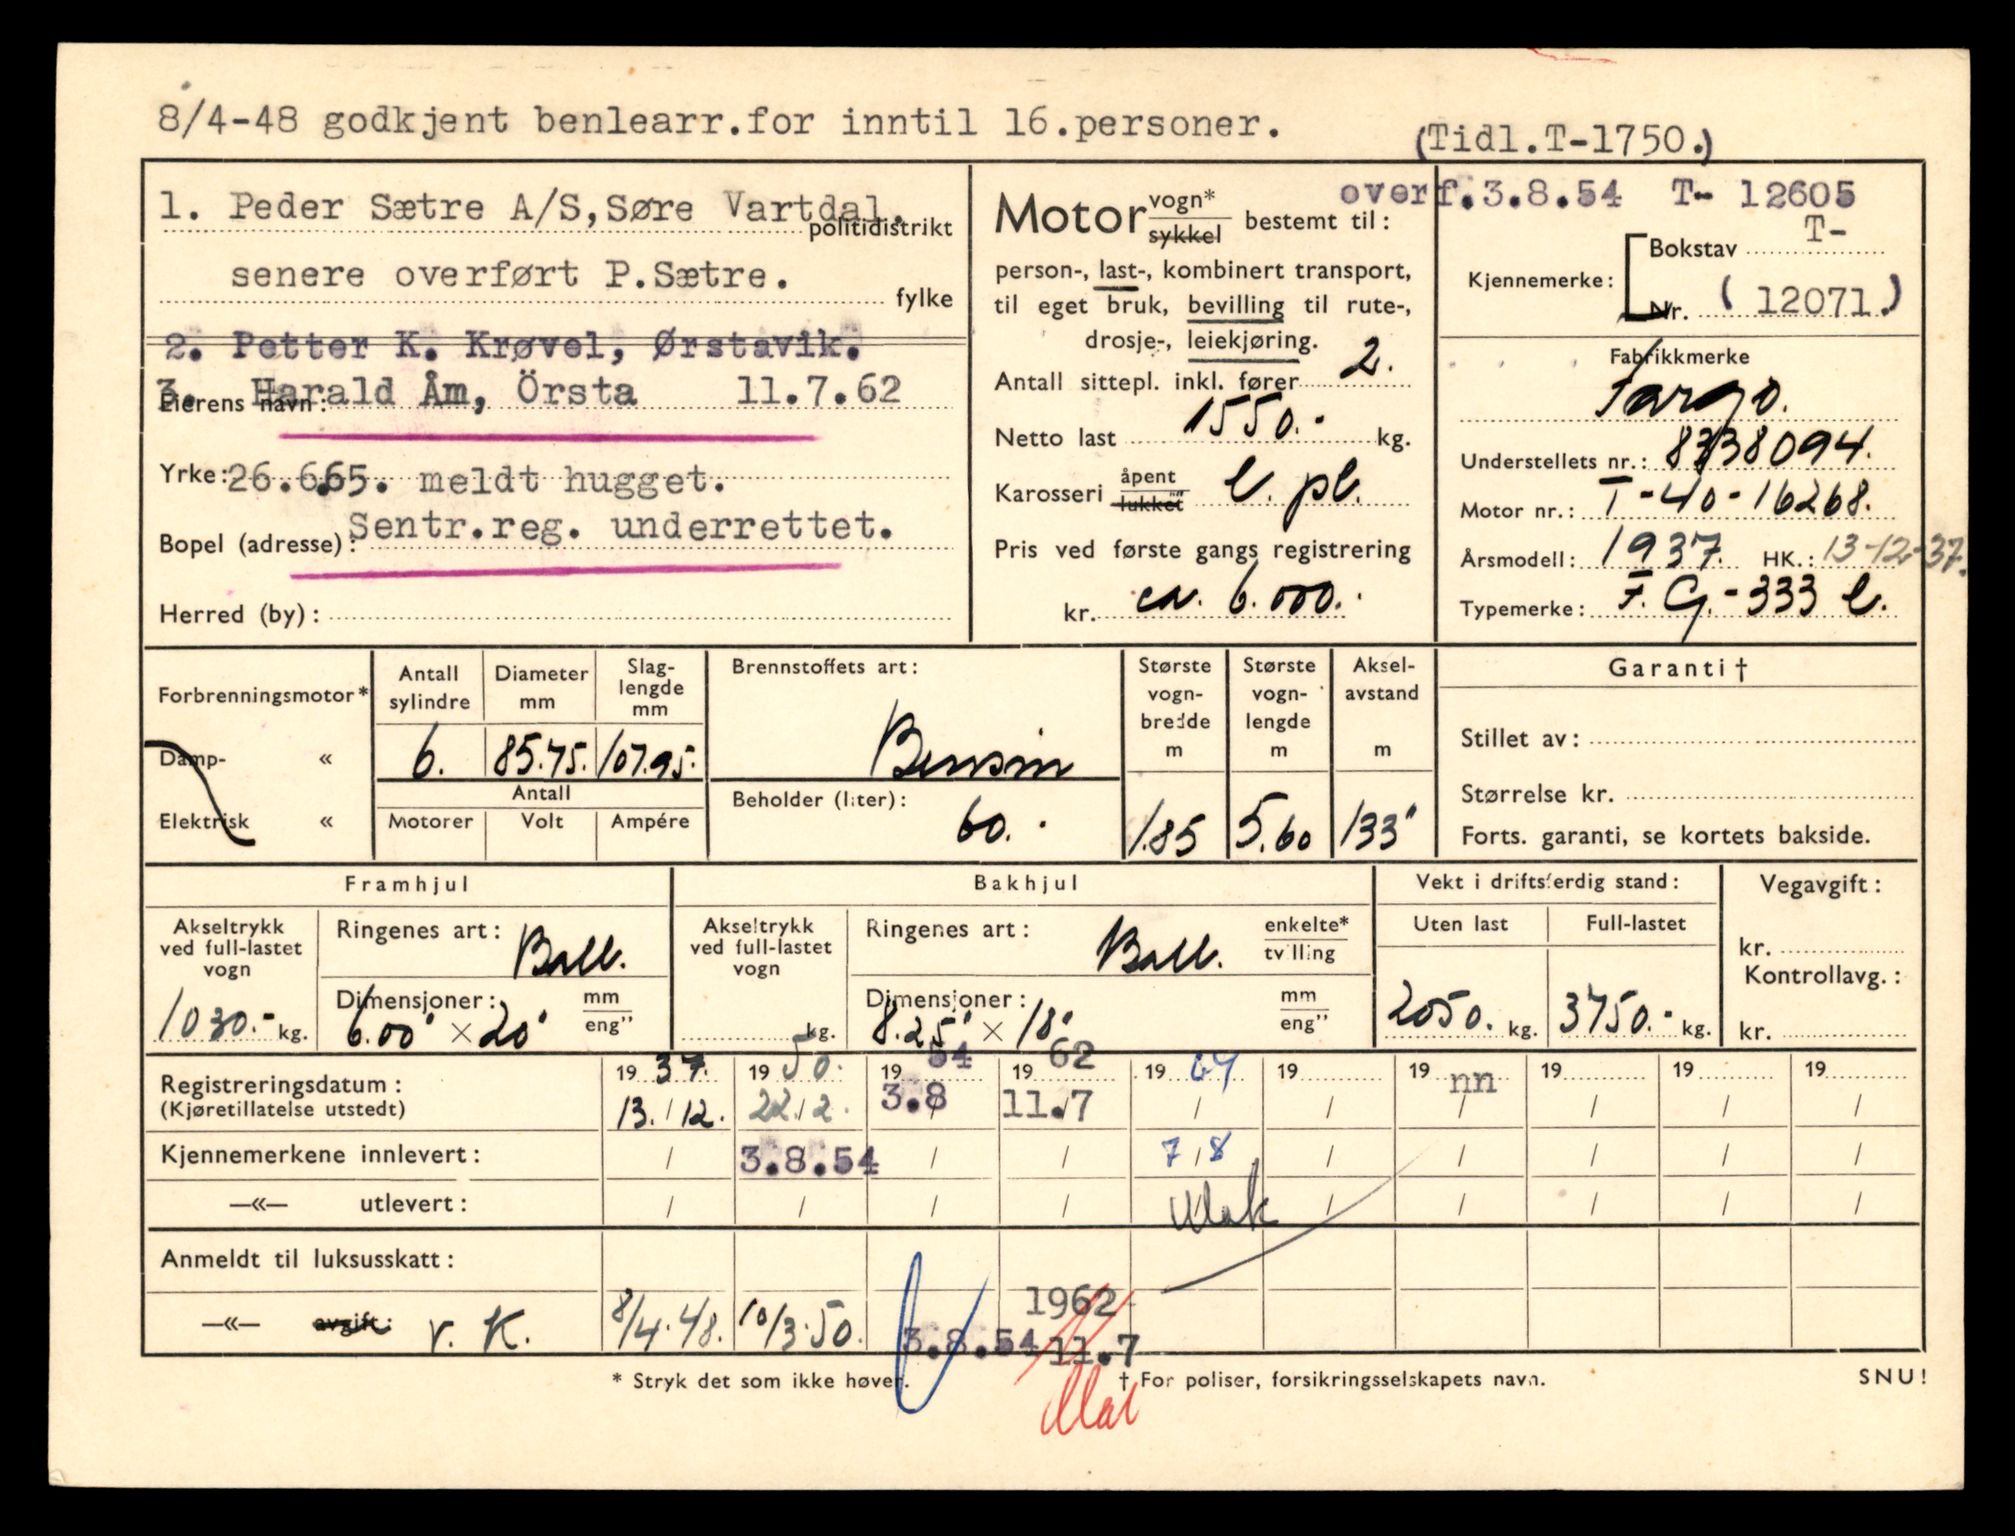 8/4-48 godkjent benlearr.for inntil 16.personer.
(Tidl.T-1750.)
1. Peder Sætre A/S,Søre Vartdal.
politidistrikt
senere overført P.Sætre.
fylke
2. Petter K. Krøvel, Ørstavik.
3. Harald Åm, Örsta 11.7.62
Eierens navn:
Yrke: 26.6.65. meldt hugget.
Sentr.reg. underrettet.
Bopel (adresse):
Herred (by):
Motor vogn* sykkel bestemt til:
person-, last-, kombinert transport,
til eget bruk, bevilling til rute-,
drosje-, leiekjøring.
Antall sittepl. inkl. fører 2.
Netto last 1550.- kg.
Karosseri åpent lukket l. pl.
Pris ved første gangs registrering
kr. ca. 6.000.-
overf.3.8.54 T- 12605
Kjennemerke: Bokstav T-
Nr. (12071.)
Fabrikkmerke
Fargo.
Understellets nr.: 8338094.
Motor nr.: T-40-16268.
Årsmodell: 1937. HK.: 13-12-37.
Typemerke: F.G.-333 l.
Forbrenningsmotor*
Damp- «
Elektrisk «
Antall sylindre
6.
Diameter mm
85.75.
Slag-lengde mm
107.95.
Antall
Motorer Volt Ampére
Brennstoffets art:
Bensin
Beholder (liter):
60.-
Største vogn-bredde m
1.85
Største vogn-lengde m
5.60
Aksel-avstand m
133"
Garanti †
Stillet av:
Størrelse kr.
Forts. garanti, se kortets bakside.
Framhjul
Akseltrykk ved full-lastet vogn
1030.- kg.
Ringenes art: Ball.
Dimensjoner: mm eng"
6.00" × 20"
Bakhjul
Akseltrykk ved full-lastet vogn
kg.
Ringenes art: Ball. enkelte* tvilling
Dimensjoner: mm eng"
8.25" × 18"
Vekt i driftsferdig stand:
Uten last Full-lastet
2050. kg. 3750.- kg.
Vegavgift:
kr.
Kontrollavg.:
kr.
Registreringsdatum: 19 37. 19 50. 19 54 19 62 19 64 19 19 nn 19 19 19
(Kjøretillatelse utstedt) 13./12. 22/2. 3.8 11.7 / / / / / /
Kjennemerkene innlevert: / 3.8.54 / / 7/8 / / / / /
—«— utlevert: / / / / / / / / /
Anmeldt til luksusskatt:
—«— avgift: v. K. 8/4.48. 10/3.50. 3.8.54 1962 11.7
* Stryk det som ikke høver.
† For poliser, forsikringsselskapets navn.
SNU!